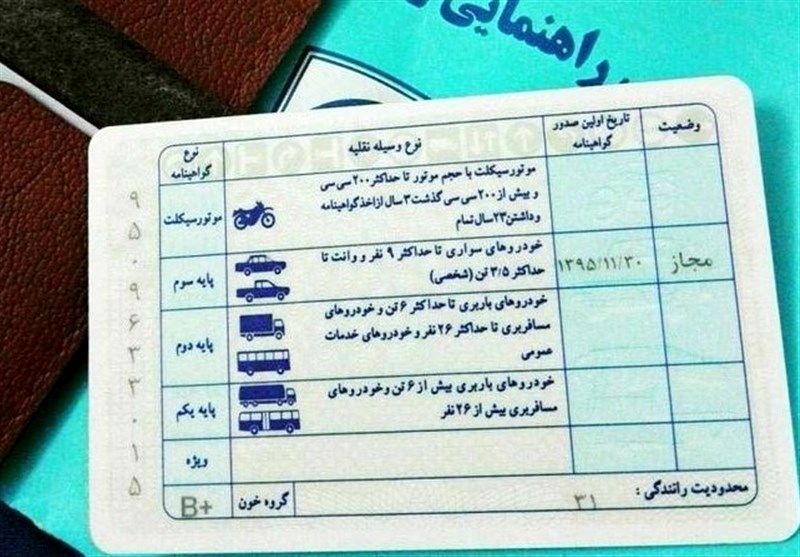 راهنمایی
وضعیت
تاریخ اولین صدور
گواهینامه
نوع وسیله نقلیه
نوع
گواهینامه
موتورسیکلت با حجم موتور تا حداکثر ۲۰۰ سی سی
و بیش از ۲۰۰ سی سی گذشت ۳ سال از اخذ گواهینامه
و داشتن ۲۳ سال تمام
موتورسیکلت
مجاز
۱۳۹۵/۱۱/۳۰
خودروهای سواری تا حداکثر ۹ نفر و وانت تا
حداکثر ۳/۵ تن (شخصی)
پایه سوم
خودروهای باربری تا حداکثر ۶ تن و خودروهای
مسافربری تا حداکثر ۲۶ نفر و خودروهای خدمات
عمومی
پایه دوم
خودروهای باربری بیش از ۶ تن و خودروهای
مسافربری بیش از ۲۶ نفر
پایه یکم
ویژه
محدودیت رانندگی :
۳۱
گروه خون
B+
۹
۵
۰
۹
۶
۳
۳
۰
۱
۵